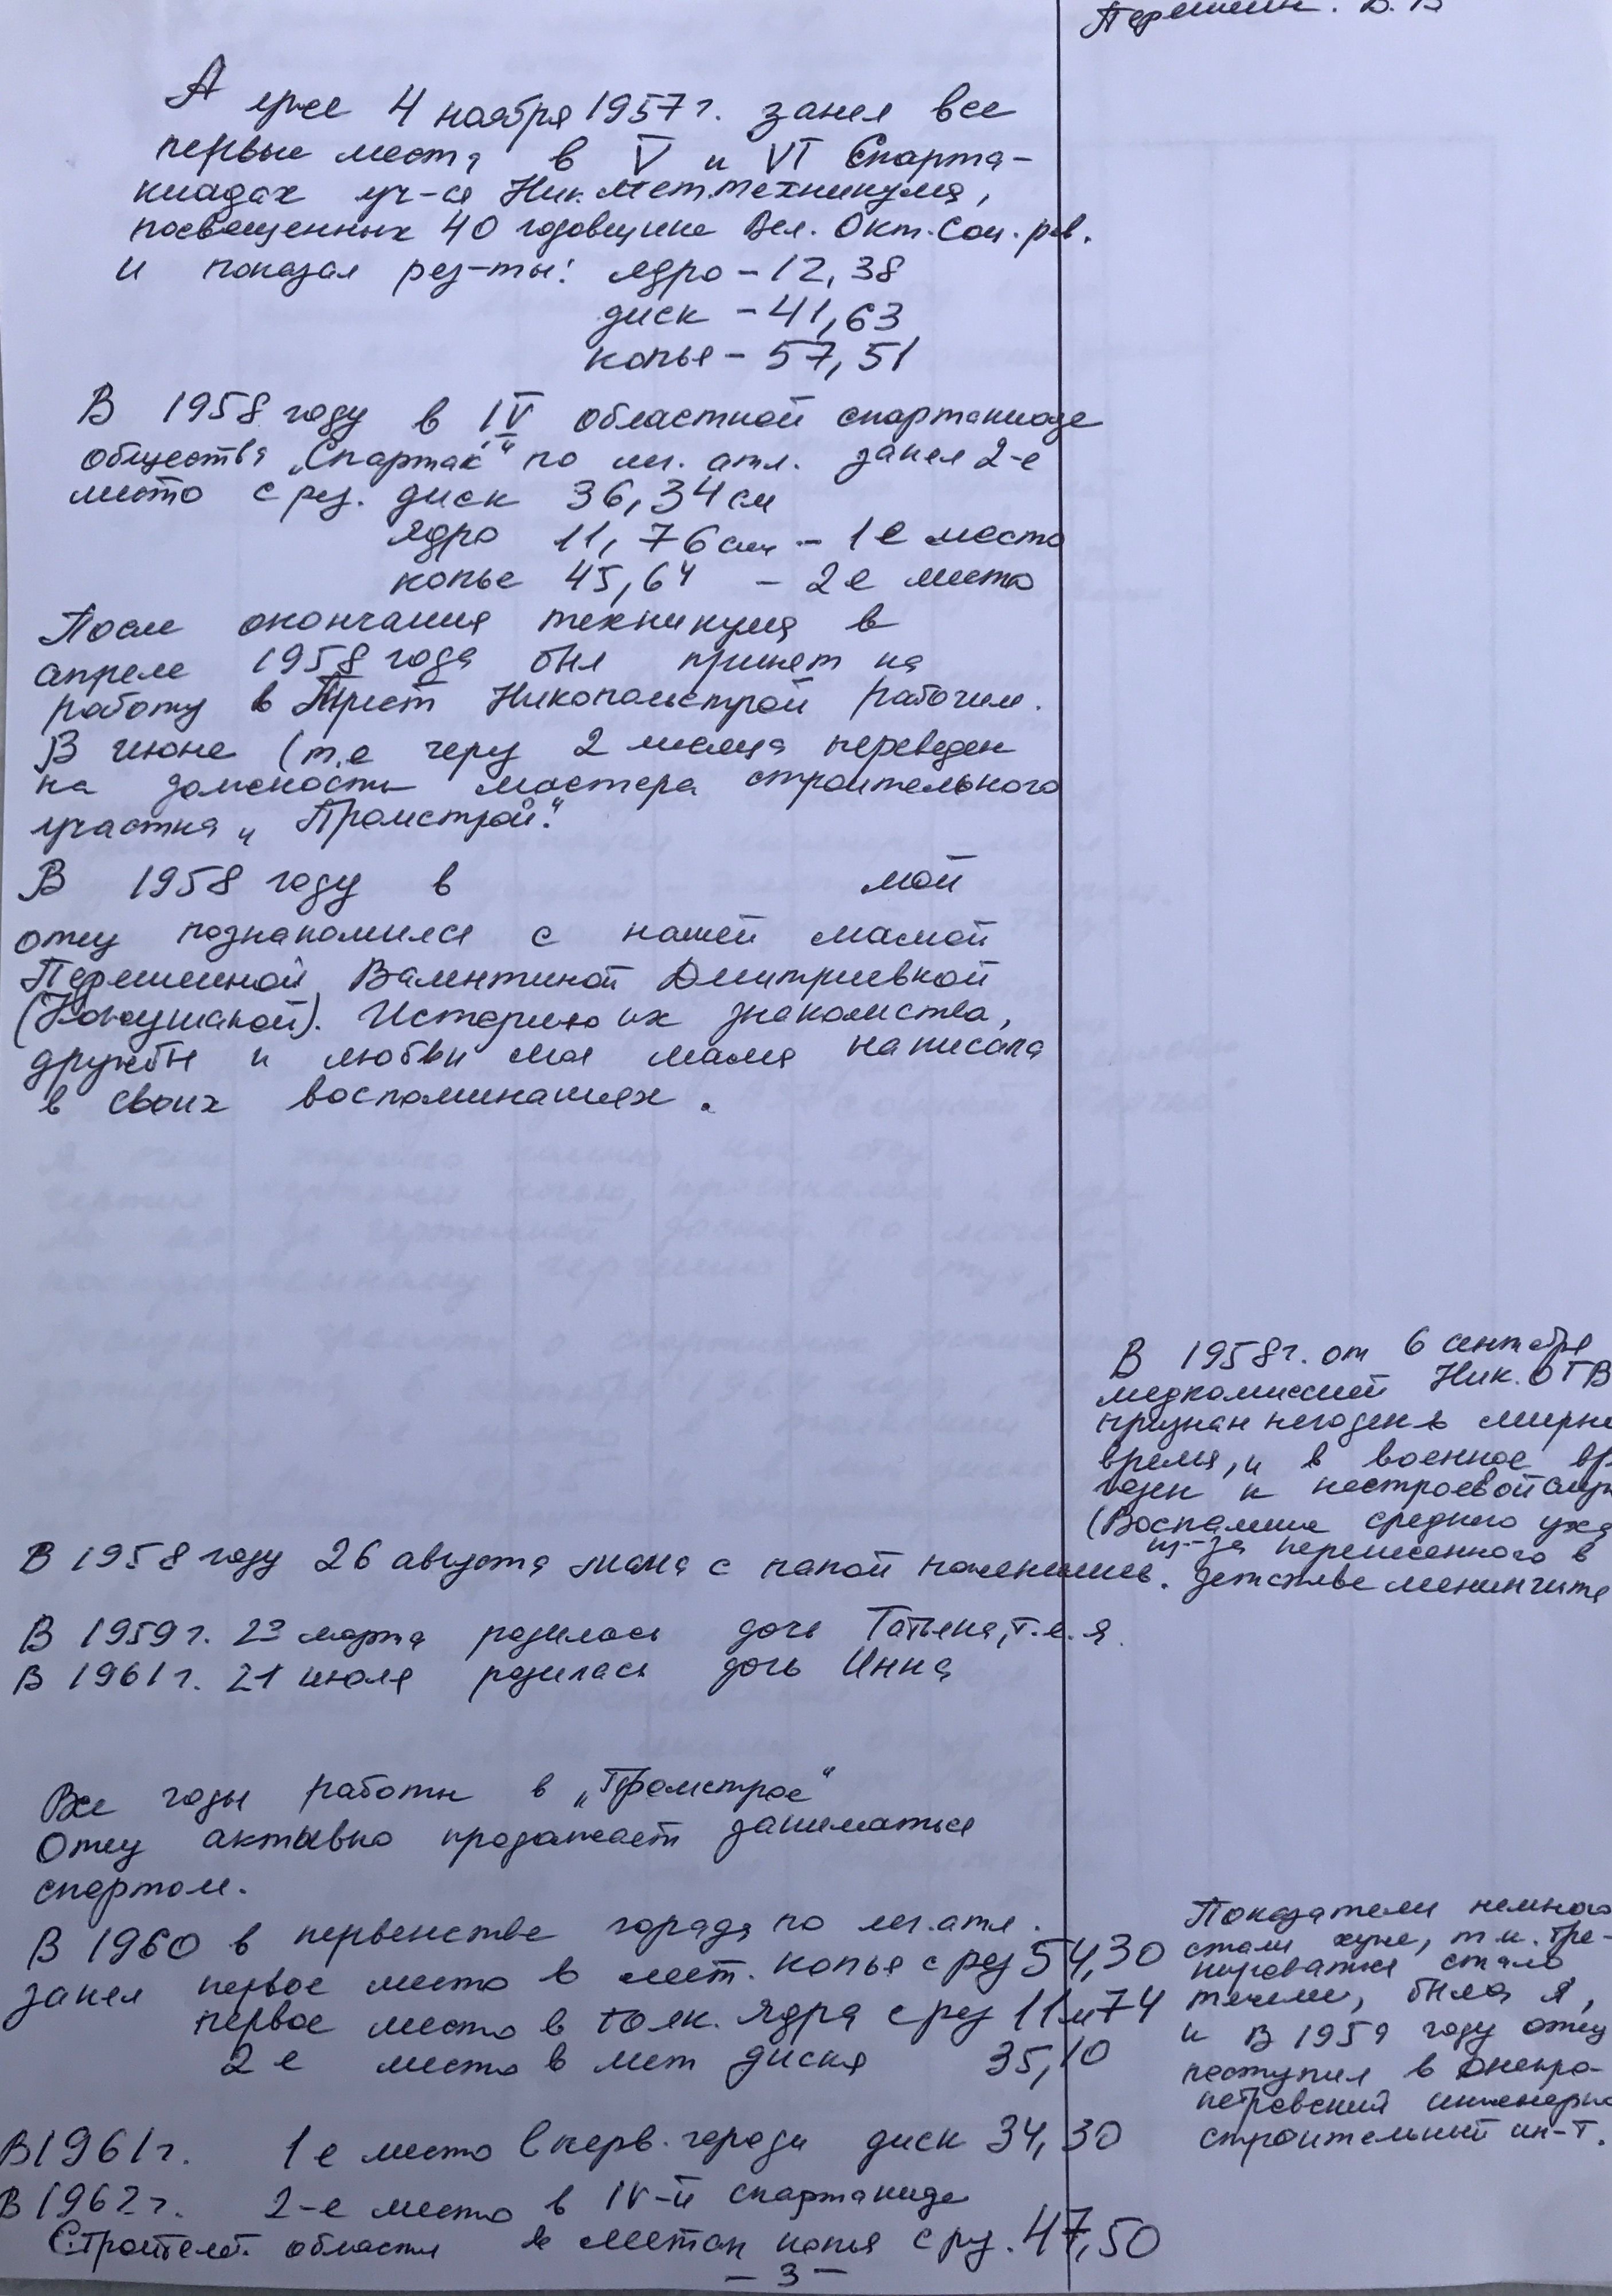 Перешеин. В. В
А уже 4 ноября 1957 г. занял все
первые места в V и VI Спарта-
киадах уч-ся Ник. Мет. техникума,
посвященных 40 годовщине Вел. Окт. Соц. рев.
и показал рез-ты: ядро - 12,38
диск - 41,63
копья - 57,51
В 1958 году в IV областной спартакиаде
общества „Спартак" по лег. атл. занял 2-е
место с рез. диск 36,34 см
ядро 11,76 см - 1е место
копье 45,64 - 2е место
После окончания техникума в
апреле 1958 года был принят на
работу в Трест Никопольстрой рабочим.
В июне (т.е через 2 месяца переведен
на должность мастера строительного
участка „Промстрой".
В 1958 году в мой
отец познакомился с нашей мамой
Перешеиной Валентиной Дмитриевной
Историю их знакомства,
дружбы и любви моя мама написала
в своих воспоминаниях.
В 1958 г. от 6 сентября
медкомиссией Ник. ОГВ
признан негоден в мирно
время, и в военное вр
годен к нестроевой служ
(Воспаление среднего уха
из-за перенесенного в
детстве менингита
В 1958 году 26 августа мама с папой поженились.
В 1959 г. 23 марта родилась дочь Татьяна, т.е. я.
В 1961 г. 21 июля родилась дочь Инна
Все годы работы в „Промстрое"
Отец активно продолжает заниматься
спортом.
В 1960 в первенстве города по лег. атл.
занял первое место в мет. копья с рез 54,30
первое место в толк. ядра с рез 11м74
2 е место в мет диска 35,10
Показатели немного
стали хуже, т.к. тре-
нироваться стало
тяжелее, была я,
и в 1959 году отец
поступил в Днепро-
петровский инженерно
строительный ин-т.
В 1961 г. 1 е место в перв. города диск 34,30
В 1962 г. 2-е место в IV-й спартакиаде
Строител. области в метан копья с рез. 47,50
- 3 -